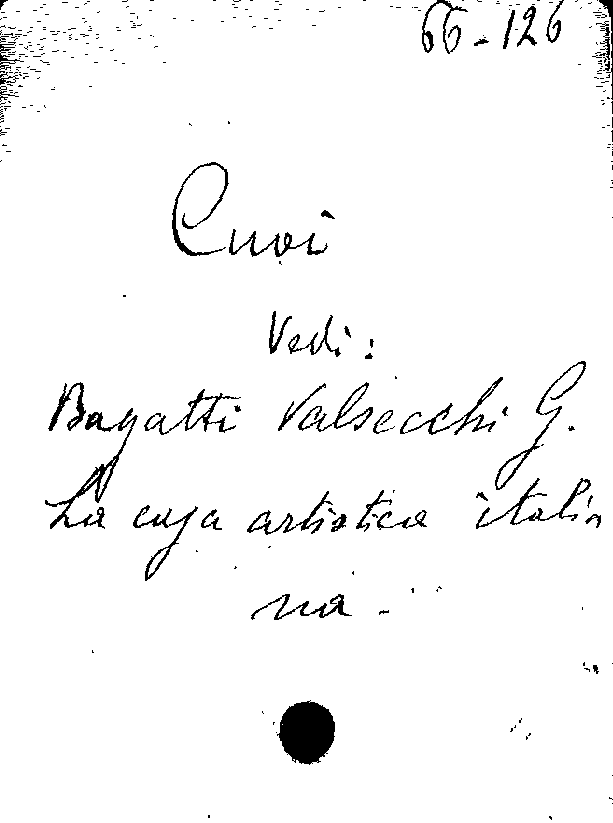 66-126
Cuoi
Vedi:
Bagatti Valsecchi G.
La casa artistica italia
na.